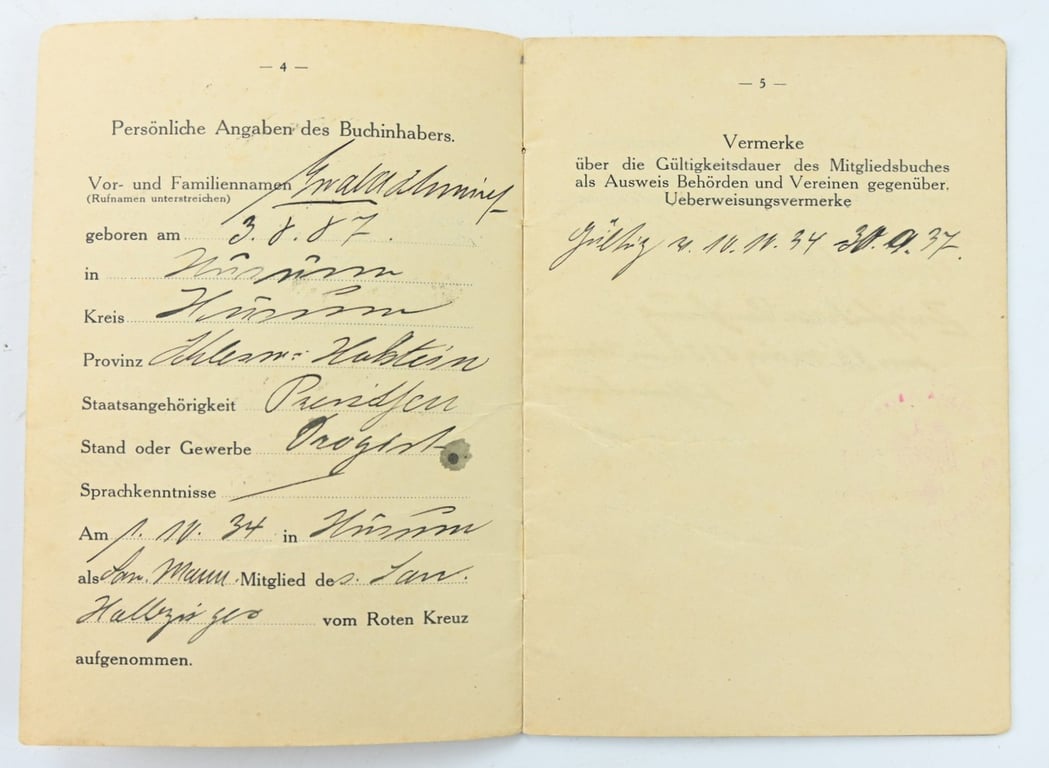 — 4 —
Persönliche Angaben des Buchinhabers.
Vor- und Familiennamen
(Rufnamen unterstreichen)
geboren am 3. 8. 87.
in Husum
Kreis Husum
Provinz Schlesw.-Holstein
Staatsangehörigkeit Preussen
Stand oder Gewerbe Drogist
Sprachkenntnisse
Am 1. 10. 34 in Husum
als San. Mann Mitglied des San.
Halbzuges vom Roten Kreuz
aufgenommen.
— 5 —
Vermerke
über die Gültigkeitsdauer des Mitgliedsbuches
als Ausweis Behörden und Vereinen gegenüber.
Ueberweisungsvermerke
Gültig v. 10. 10. 34 - 30. 9. 37.